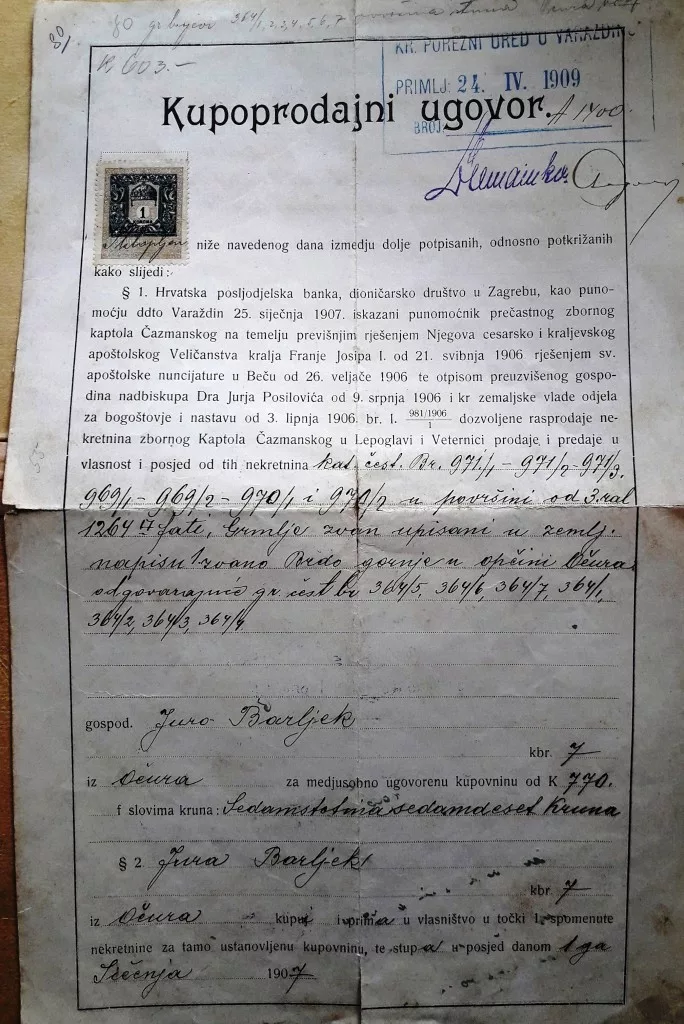 80/. 80 gr. 364/1,2,3,4,5,6,7
K 603.—
KR. POREZNI URED U VARAŽDINU
PRIMLJ: 24. IV. 1909
BROJ: A 1400.
Kupoprodajni ugovor.
1
niže navedenog dana izmedju dolje potpisanih, odnosno potkrižanih
kako slijedi:
§ 1. Hrvatska posljodjelska banka, dioničarsko društvo u Zagrebu, kao puno-
moćju ddto Varaždin 25. siječnja 1907. iskazani punomoćnik prečastnog zbornog
kaptola Čazmanskog na temelju previšnjim rješenjem Njegova cesarsko i kraljevskog
apoštolskog Veličanstva kralja Franje Josipa I. od 21. svibnja 1906 rješenjem sv.
apoštolske nuncijature u Beču od 26. veljače 1906 te otpisom preuzvišenog gospo-
dina nadbiskupa Dra Jurja Posilovića od 9. srpnja 1906 i kr zemaljske vlade odjela
za bogoštovje i nastavu od 3. lipnja 1906. br. I. 981/1906/1 dozvoljene rasprodaje ne-
kretnina zbornog Kaptola Čazmanskog u Lepoglavi i Veternici prodaje i predaje u
vlasnost i posjed od tih nekretnina kat. čest. Br. 971/1 - 971/2 - 971/3.
969/1 - 969/2 - 970/1 i 970/2 u površini od 3. ral
1264 □ fati, Grmlje zvan upisani u zemlj.
napisu zvano Brdo gornje u općini Očura
odgovarajuće gr. čest br 364/5, 364/6, 364/7, 364/1,
364/2, 364/3, 364/4
gospod. Juro Barljek
kbr. 7
iz Očura za medjusobno ugovorenu kupovninu od K 770.
f slovima kruna: Sedamstotina sedamdeset Kruna
§ 2. Jura Barljek
kbr. 7
iz Očura kupuj i prima u vlasništvo u točki I. spomenute
nekretnine za tamo ustanovljenu kupovninu, te stupa u posjed danom 1 ga
Siečnja 1907